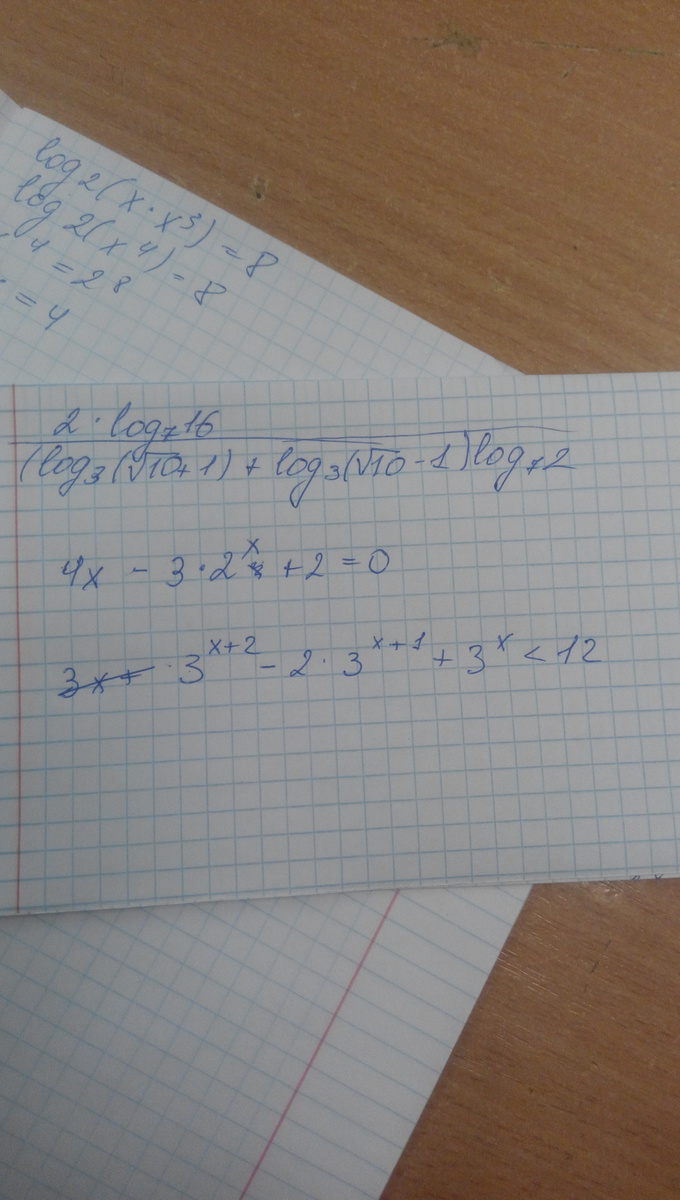 log2(x·x³) = 8
log2(x⁴) = 8
4 = 2⁸
= 4
2·log₇16
(log₃(√10+1) + log₃(√10-1)log₇2
4x - 3·2ˣ + 2 = 0
3x+ · 3ˣ⁺² - 2·3ˣ⁺¹ + 3ˣ < 12